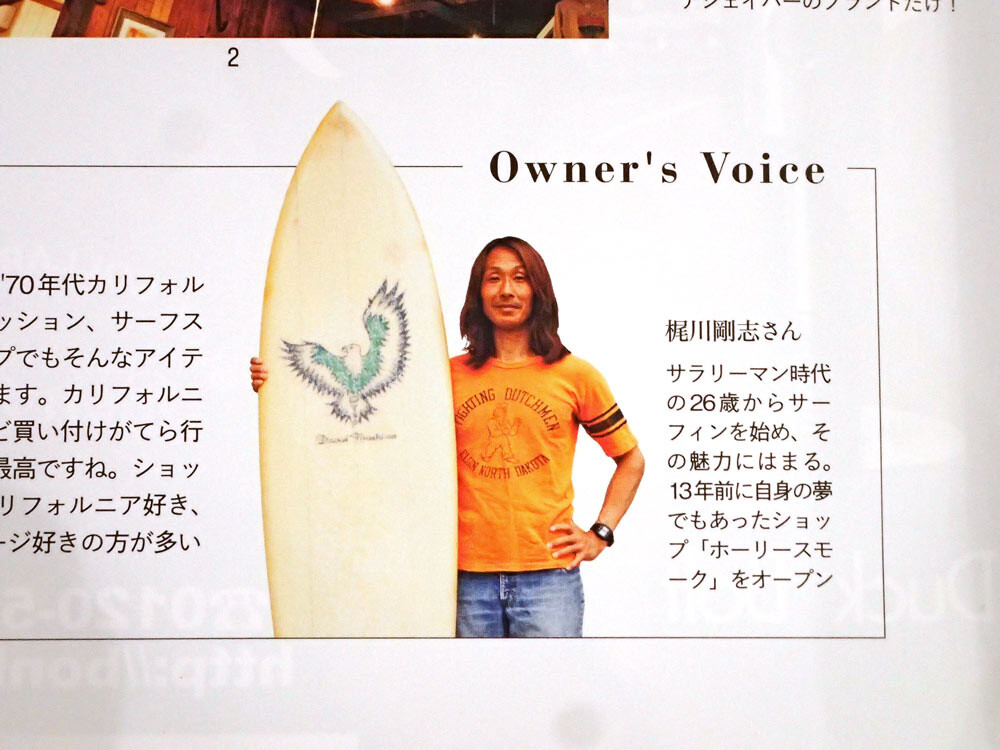 ナシェイパーのブランドだけ！
2
Owner's Voice
'70年代カリフォル
ッション、サーフス
プでもそんなアイテ
ます。カリフォルニ
ど買い付けがてら行
最高ですね。ショッ
リフォルニア好き、
ージ好きの方が多い
FIGHTING DUTCHMEN
ELGIN NORTH DAKOTA
梶川剛志さん
サラリーマン時代
の26歳からサー
フィンを始め、そ
の魅力にはまる。
13年前に自身の夢
でもあったショッ
プ「ホーリースモ
ーク」をオープン